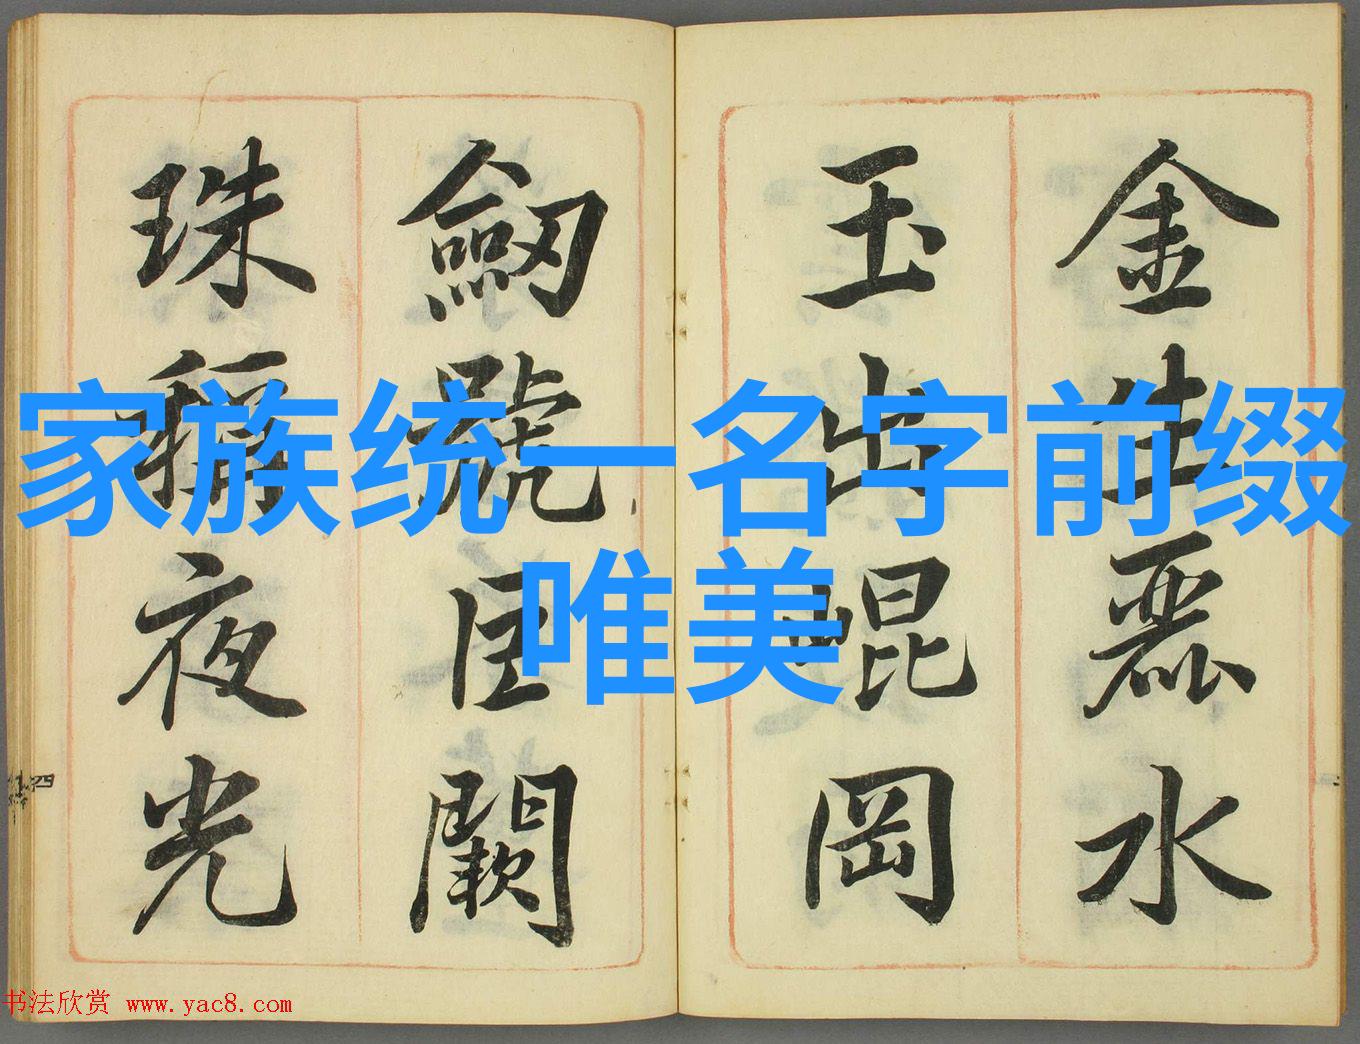 家族统一名字前缀
唯美
金生麗水
玉出崐岡
劔號巨闕
珠稱夜光
书法欣赏 www.yac8.com